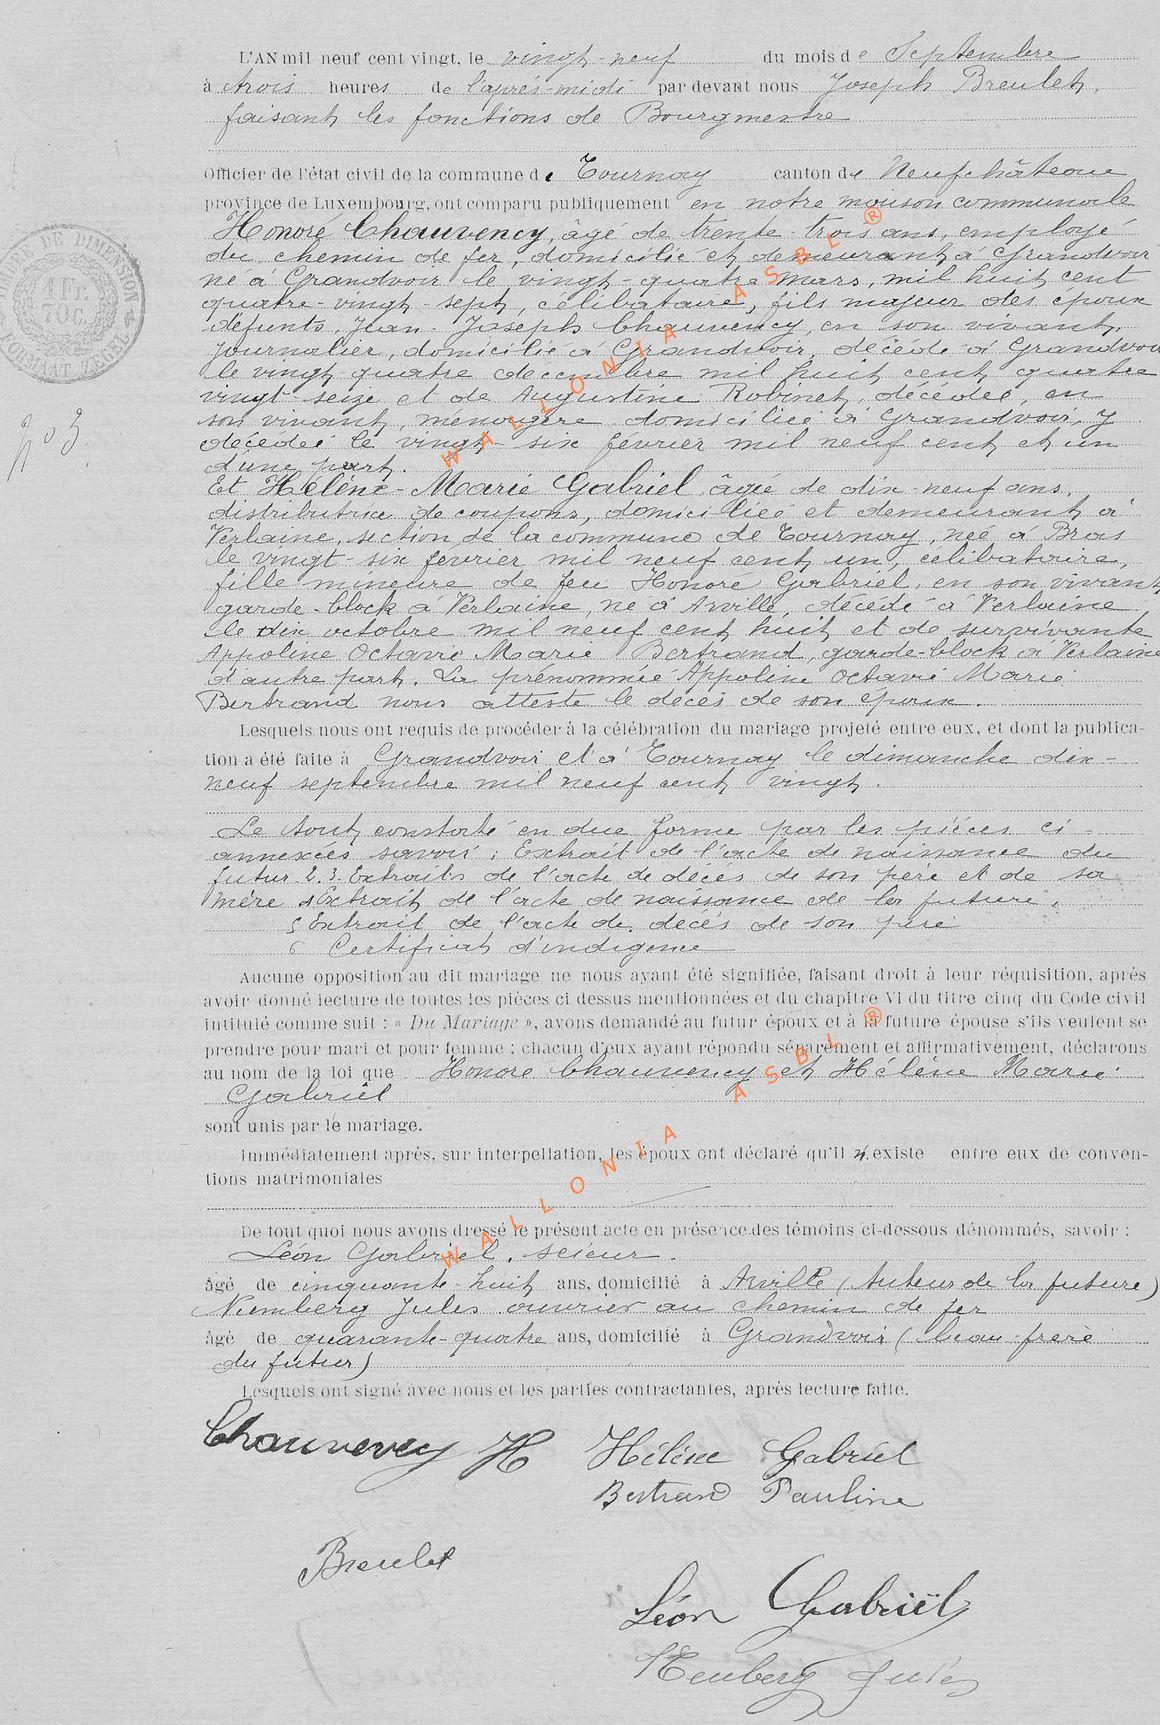 L'AN mil neuf cent vingt, le vingt-neuf du mois de Septembre
à trois heures de l'après-midi par devant nous Joseph Breulet,
faisant les fonctions de Bourgmestre
Officier de l'état civil de la commune de Tournay canton de Neufchâteau
province de Luxembourg, ont comparu publiquement en notre maison communale
Honoré Chauvency, âgé de trente-trois ans, employé
du chemin de fer, domicilié et demeurant à Grandvoir
né à Grandvoir le vingt-quatre mars, mil huit cent
quatre-vingt-sept, célibataire, fils majeur des époux
défunts, Jean-Joseph Chauvency, en son vivant,
journalier, domicilié à Grandvoir, décédé à Grandvoir
le vingt-quatre décembre mil huit cent quatre
vingt-seize et de Augustine Robinet, décédée, en
son vivant ménagère domiciliée à Grandvoir, y
décédée le vingt-six février mil neuf cent et un
d'une part.
Et Hélène-Marie Gabriel, âgée de dix-neuf ans,
distributrice de coupons, domiciliée et demeurant à
Verlaine, section de la commune de Tournay, née à Bras
le vingt-six février mil neuf cent un, célibataire,
fille mineure de feu Honoré Gabriel, en son vivant
garde-block à Verlaine, né à Arville, décédé à Verlaine
le dix octobre mil neuf cent huit et de survivante
Appoline Octavie Marie Bertrand, garde-block à Verlaine
d'autre part. La prénommée Appoline Octavie Marie
Bertrand nous atteste le décès de son époux.
Lesquels nous ont requis de procéder à la célébration du mariage projeté entre eux, et dont la publica-
tion a été faite à Grandvoir et à Tournay le dimanche dix-
neuf septembre mil neuf cent vingt.
Le tout constaté en due forme par les pièces ci-
annexées savoir : Extrait de l'acte de naissance du
futur 2.3. Extraits de l'acte de décès de son père et de sa
mère 4 Extrait de l'acte de naissance de la future,
5 Extrait de l'acte de décès de son père
6 Certificat d'indigence
Aucune opposition au dit mariage ne nous ayant été signifiée, faisant droit à leur réquisition, après
avoir donné lecture de toutes les pièces ci dessus mentionnées et du chapitre VI du titre cinq du Code civil
intitulé comme suit : « Du Mariage », avons demandé au futur époux et à la future épouse s'ils veulent se
prendre pour mari et pour femme ; chacun d'eux ayant répondu séparément et affirmativement, déclarons
au nom de la loi que Honoré Chauvency et Hélène Marie
Gabriel
sont unis par le mariage.
Immédiatement après, sur interpellation, les époux ont déclaré qu'il n'existe entre eux de conven-
tions matrimoniales
De tout quoi nous avons dressé le présent acte en présence des témoins ci-dessous dénommés, savoir :
Léon Gabriel, scieur.
âgé de cinquante-huit ans, domicilié à Arville (tuteur de la future)
Niemberg Jules ouvrier au chemin de fer
âgé de quarante-quatre ans, domicilié à Grandvoir (beau-frère
du futur)
Lesquels ont signé avec nous et les parties contractantes, après lecture faite.
Chauvency H Hélène Gabriel
Bertrand Pauline
Breulet
Léon Gabriël
Jules
203
WALLONIA ASBL ®
WALLONIA ASBL ®